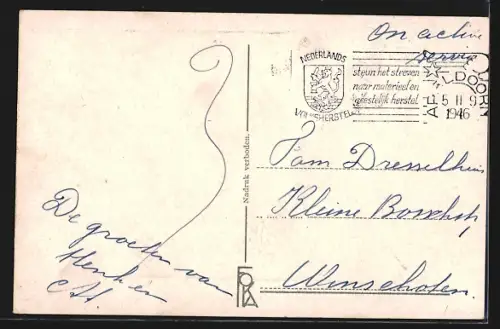 On active
service
NEDERLANDS
VOLKSHERSTEL
steun het streven
naar materieel en
geestelijk herstel
APELDOORN
5 II 9
1946
Nadruk verboden.
Fam Dresselhuis
Kleine
Winschoten
De groeten van
Henk en